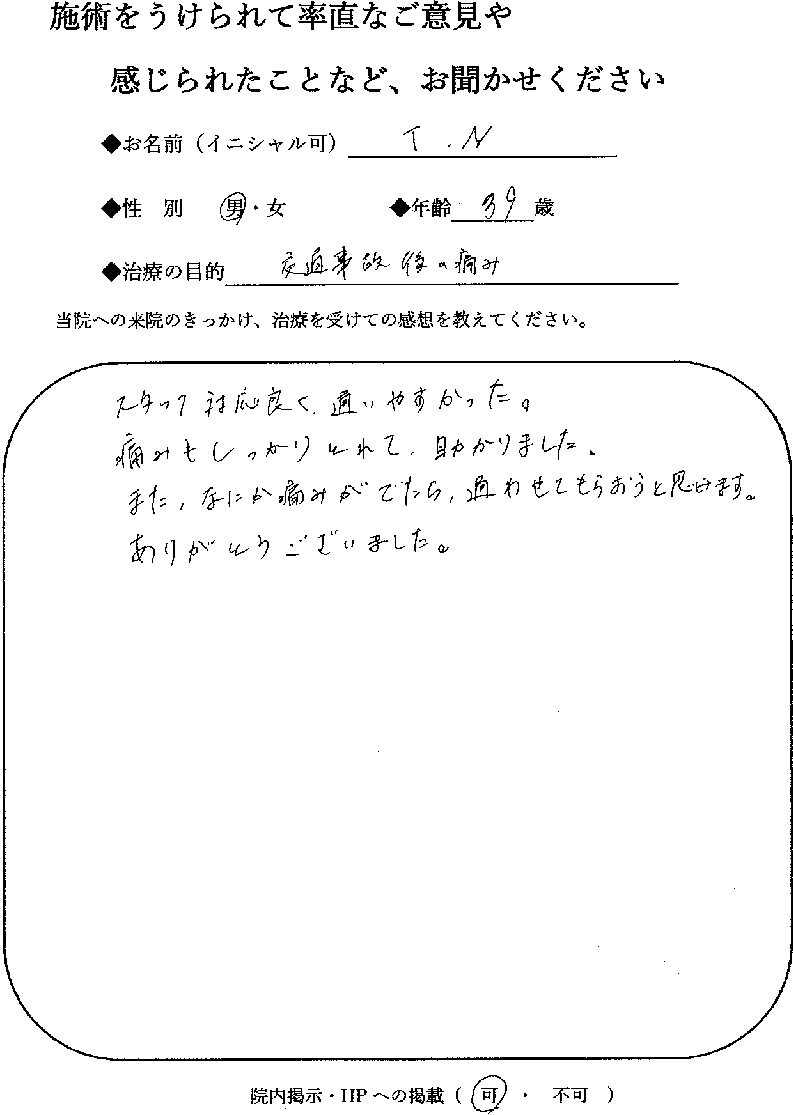 施術をうけられて率直なご意見や
感じられたことなど、お聞かせください
◆お名前（イニシャル可） T.N
◆性 別 男・女 ◆年齢 39 歳
◆治療の目的 交通事故後の痛み
当院への来院のきっかけ、治療を受けての感想を教えてください。
スタッフ対応良く、通いやすかった。
痛みもしっかりとれて、助かりました。
また、なにか痛みがでたら、通わせてもらおうと思います。
ありがとうございました。
院内掲示・HPへの掲載（ 可 ・ 不可 ）